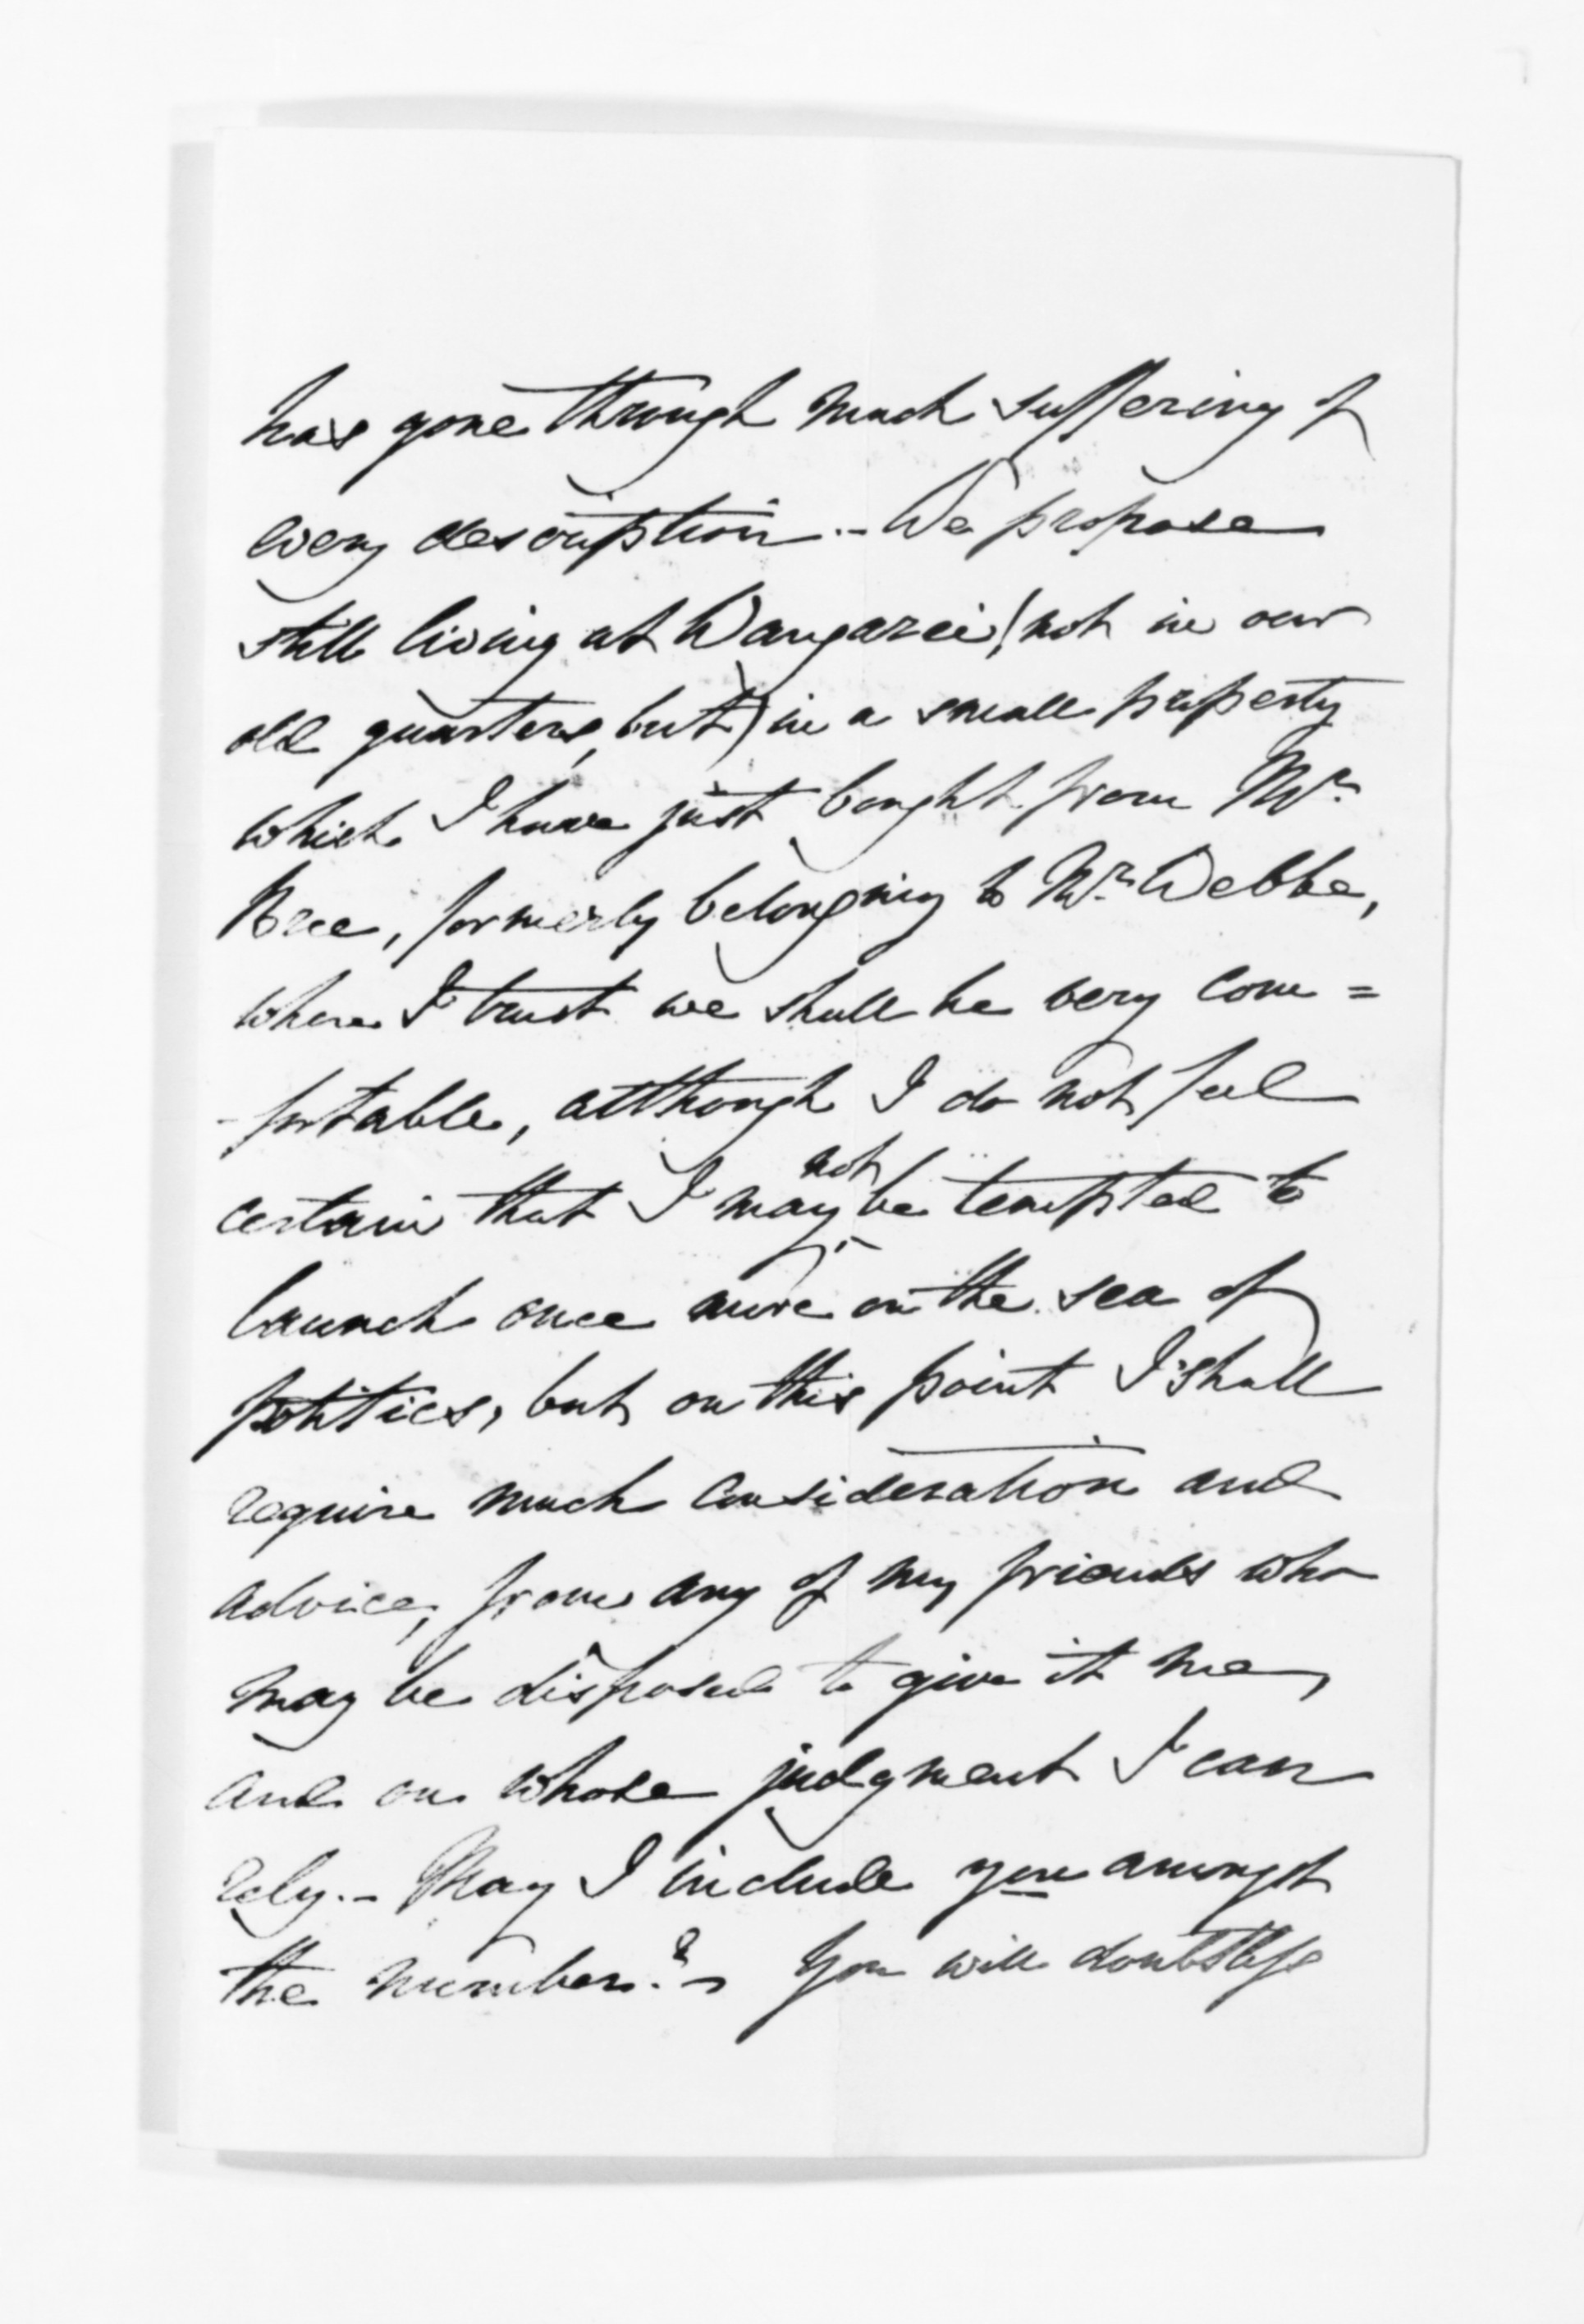 has gone through much suffering of
every description.- We propose
still living at Wangarei (not in our
old quarters, but) in a small property
which I have just bought from Mr.
Bree, formerly belonging to Mr. Webbe,
where I trust we shall be very com=
-fortable, although I do not feel
certain that I may not be tempted to
launch once more on the sea of
politics, but on this point I shall
require much consideration and
advice, from any of my friends who
may be disposed to give it me,
and on whose judgment I can
rely.- May I include you amongst
the number.?- You will doubtless